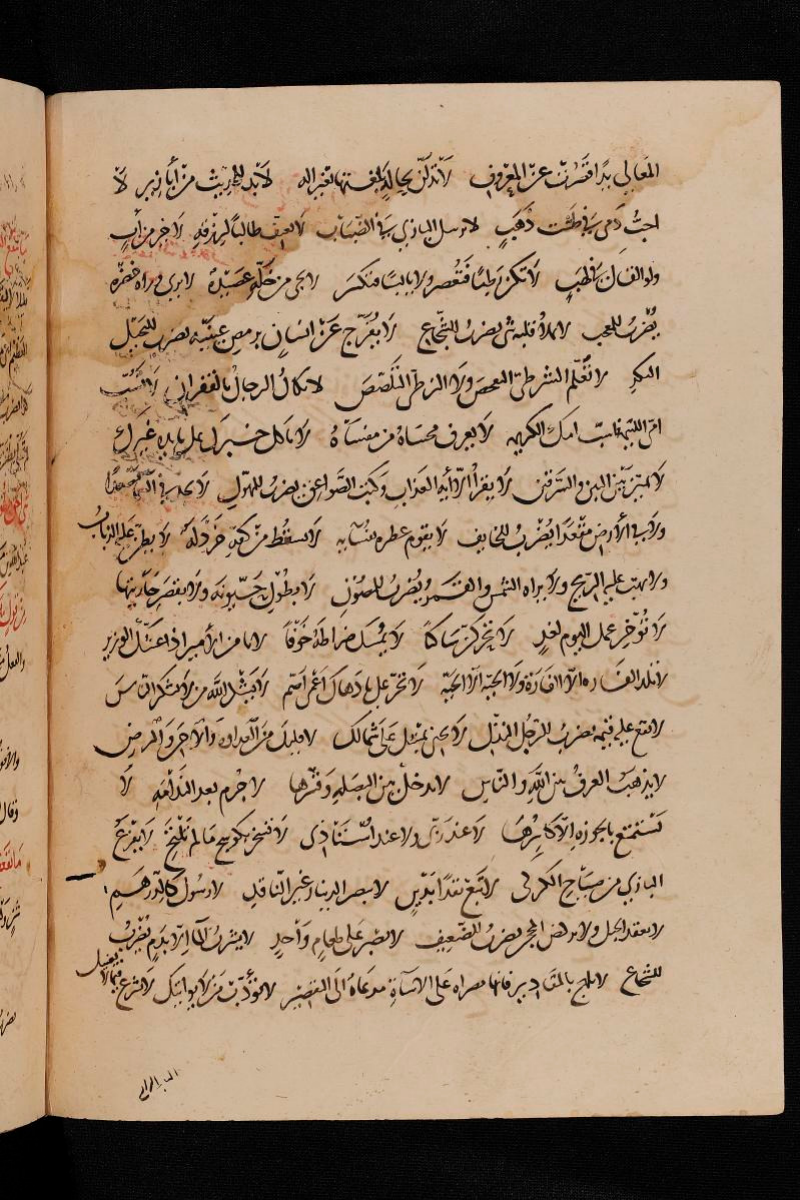 المعالي بدا قصرت عن المعروف لا تدلن بحالة بلغتها بغير اله لا بد للحديث من أبازير لا
احب دمي في طست ذهب لا ترسل البازي في الضباب لا تعنف طالبا لرزقه لا خير من أب
ولو القاك في لهب لا تكن رطبا فتعصر ولا يابسا فتكسر لا يجي من خله عصيدة لا يرى وراه خضرة
يضرب للمعجب لا يملأ قلبه شي يضرب للشجاع لا يفرج عن انسان برمص عينيه يضرب للبخيل
النكد لا تعلم الشرطي التفحص ولا الزطي التلصص لا تكال الرجال بالقفزان لا تسب
امي اللئيمة فاسب امك الكريمة لا يعرف محساه من مفساه لا تأكل خبزك على مايدة غيرك
لا يميز بين التين والسرقين لا يقرأ الا أية العذاب وكتب الصواعق يضرب للمهول لا يجد في السما مصعدا
ولا في الأرض مقعدا يضرب للخايف لا يقوم عطره بفسايه لا يسقط من كفه خردلة لا يطن عليه الذباب
ولا يهب عليه الريح ولا يراه الشمس والقمر يضرب للمصون لا يطول حيوته ولا يقصر جاريتها
لا تؤخر عمل اليوم لغد لا تحركن ساكنا لا يمسك ضراطه خوفا لا يامن الأمير اذا غش الوزير
لا تلد الفارة الا الفارة ولا الحية الا الحية لا تجر على ما دهاك اعمى اصم لا يشكر الله من لا يشكر الناس
لا تقع عليه قيمة يضرب للرجل المبتذل لا يحزنك على شمالك لا قليل من العداوة والاحن والمرض
لا يذهب العرف بين الله والناس لا تدخل بين البصلة وقشرها لا جرم بعد الندامة لا
تستمتع بالجوزه الا كاسرها لا عند ربي ولا عند استاذي لا تسخر بكوسج ما لم تلتح لا يفزع
البازي من صياح الكركي لا تبع نقدا بدين لا يبصر الدينار غير الناقد لا رسول كالدرهم
لا يعقد الحبل ولا يركض الحجر يضرب للضعيف لا يصبر على طعام واحد لا يشرب الما الا بدم يضرب
للشجاع لا تلج بالمقادير فانها مضراة على الاساءة مدعاة الى التقصير لا تؤدب من لا يواتيك لا تسرع